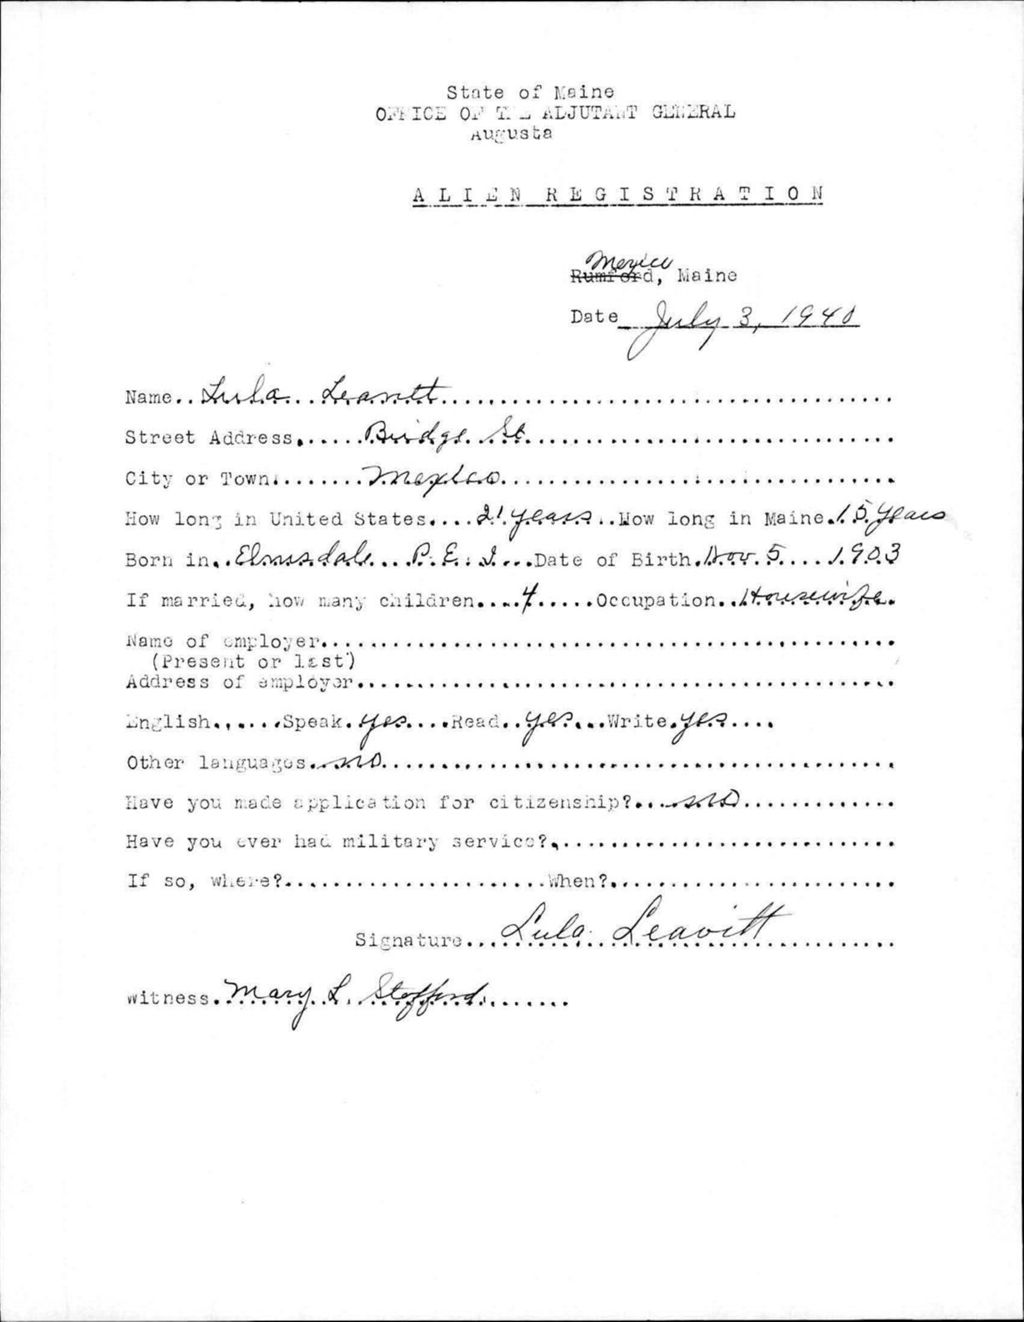 State of Maine
OFFICE OF THE ADJUTANT GENERAL
Augusta
ALIEN REGISTRATION
Mexico
Rumford, Maine
Date July 3, 1940
Name.. Lula Leavitt
Street Address Bridge St
City or Town Mexico
How long in United States 21 years How long in Maine 15 years
Born in Elmsdale P.E.I. Date of Birth Nov. 5 1903
If married, how many children 4 Occupation Housewife
Name of employer
(Present or last)
Address of employer
English Speak yes Read yes Write yes
Other languages no
Have you made application for citizenship? no
Have you ever had military service?
If so, where? When?
Signature Lula Leavitt
Witness Mary L.